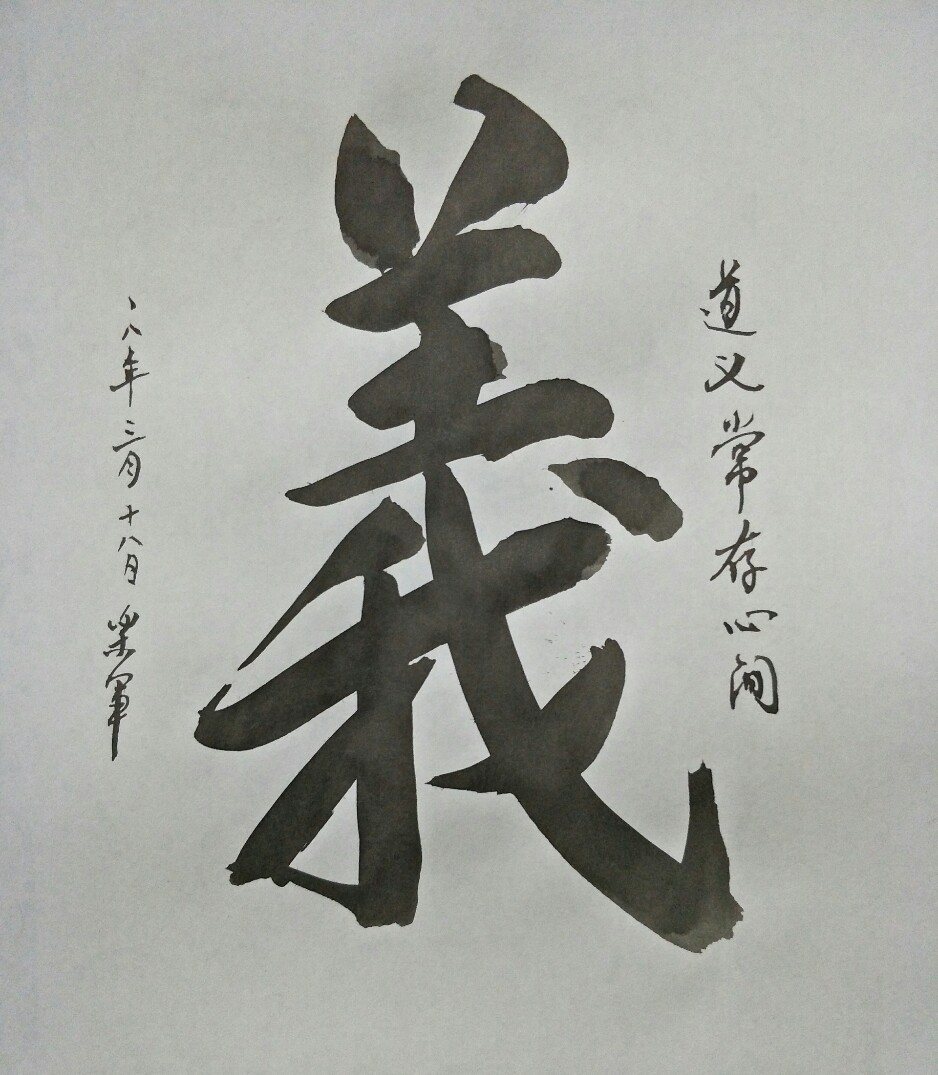 道义常存心间
義
一八年三月十八日 荣軍